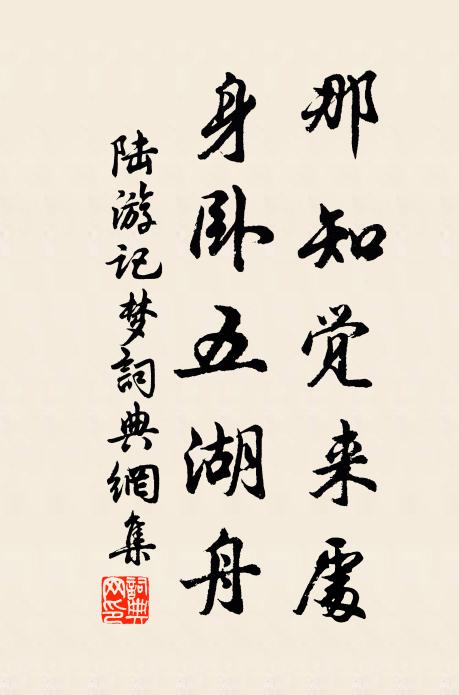 那知觉来處
身卧五湖舟
陆游记梦詞典網集
詞典网印